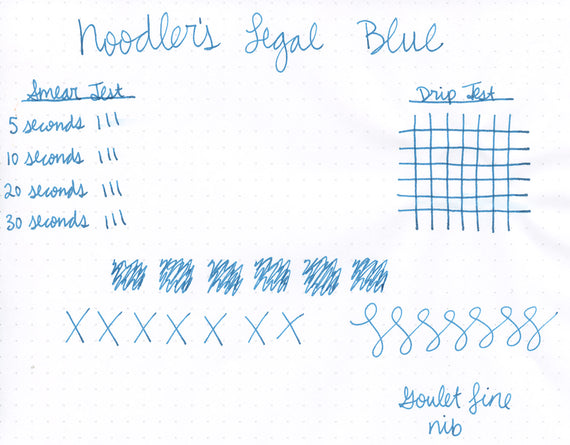 Noodler's Legal Blue
Smear Test
5 seconds
10 seconds
20 seconds
30 seconds
Drip Test
X X X X X X X
Goulet fine
nib